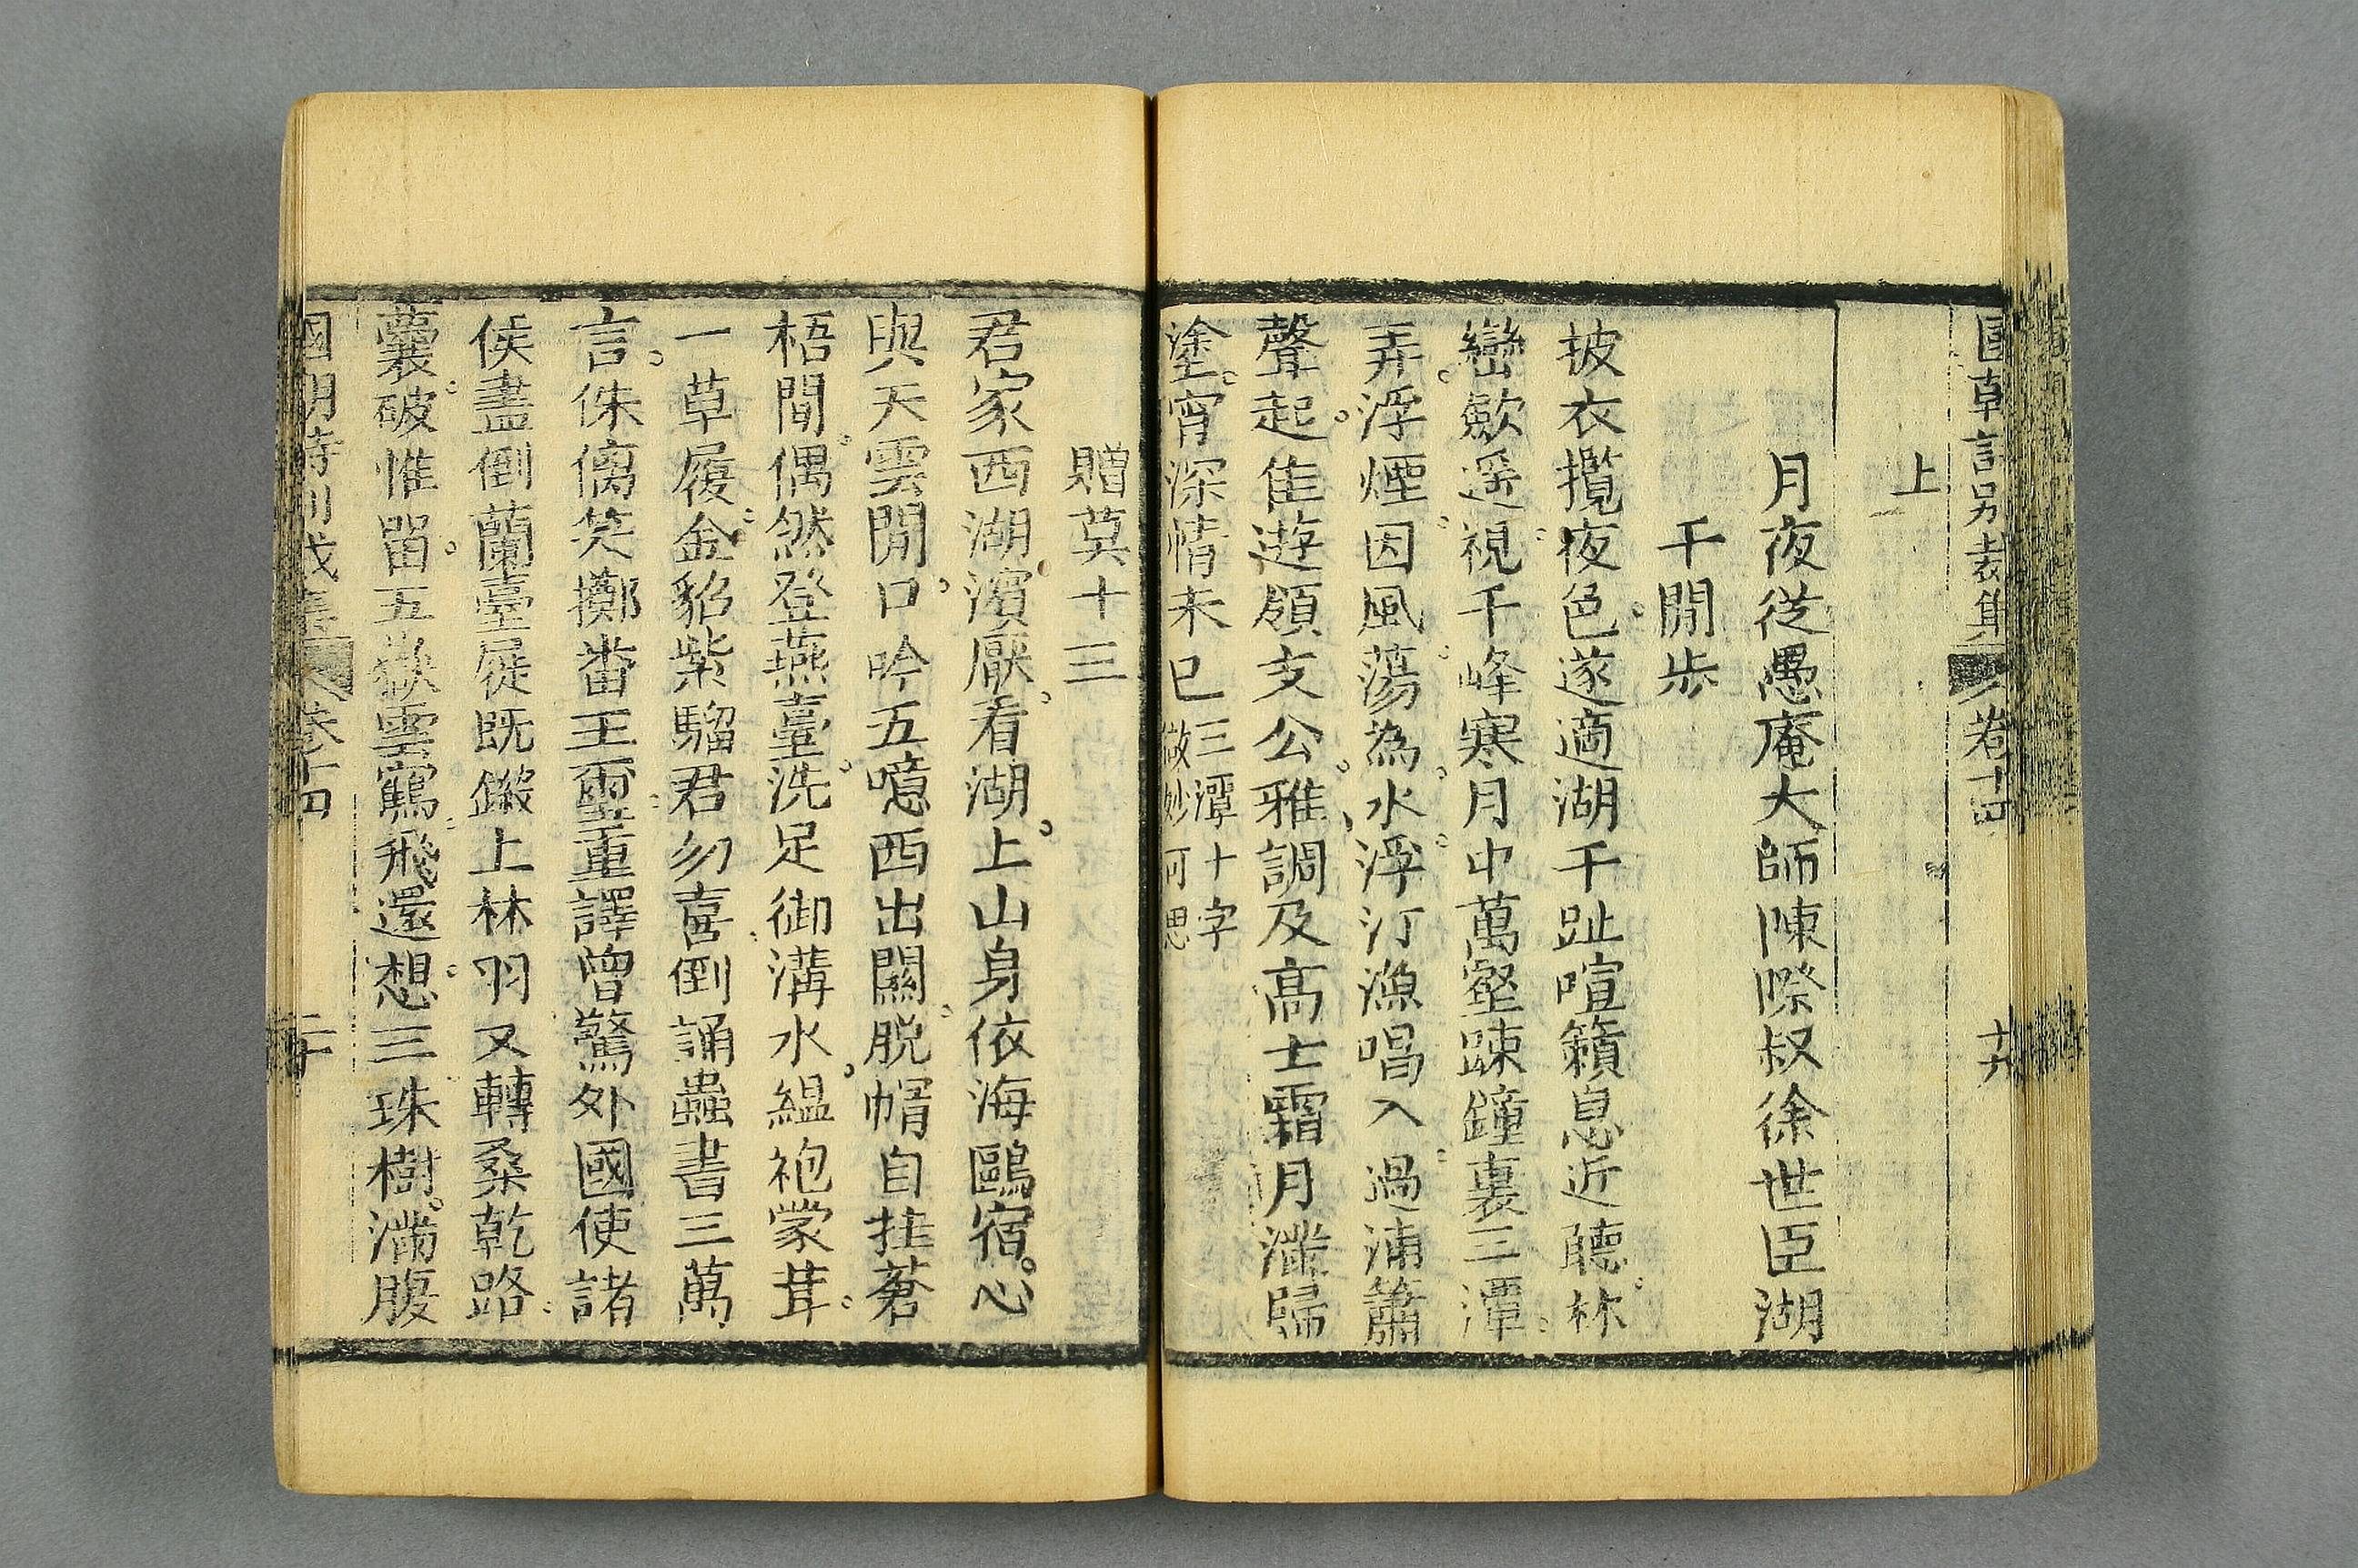 國朝詩別裁集 卷十四 十九
上
月夜從愚庵大師陳際叔徐世臣湖
千閒步
披衣攬夜色遂適湖千趾喧籟息近聽林
巒歛遥視千峰寒月中萬壑踈鐘裏三潭
弄浮煙因風蕩為水浮汀漁唱入過浦簫
聲起佳遊領支公雅調及高士霜月滿歸
塗宵深情未已
三潭十字
做妙可思
贈莫十三
君家西湖濱厭看湖上山身依海鷗宿心
與天雲閒口吟五噫西出關脱帽自挂蒼
梧間偶然登燕臺洗足御溝水縕袍蒙茸
一草履金貂紫騮君勿喜倒誦蟲書三萬
言侏㒧笑擲畨王璽重譯曾驚外國使諸
侯盡倒蘭臺屣既鎩上林羽又轉桑乾路
囊破惟留五嶽雲鶴飛還想三珠樹滿腹
國朝詩別裁集 卷十四 二十